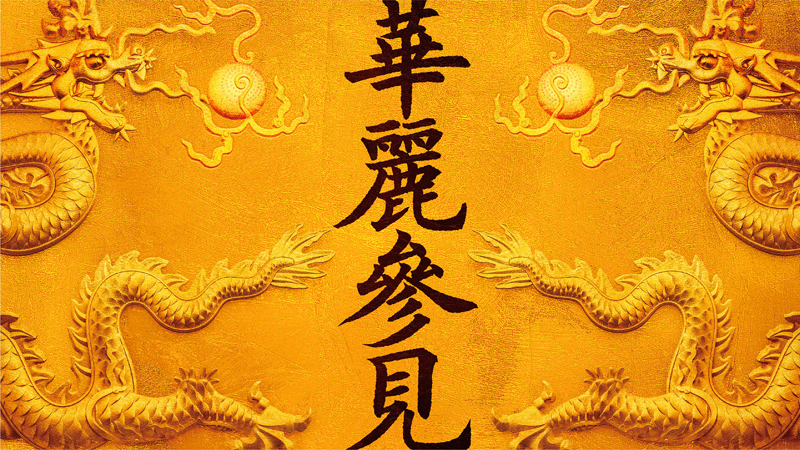 華麗參見